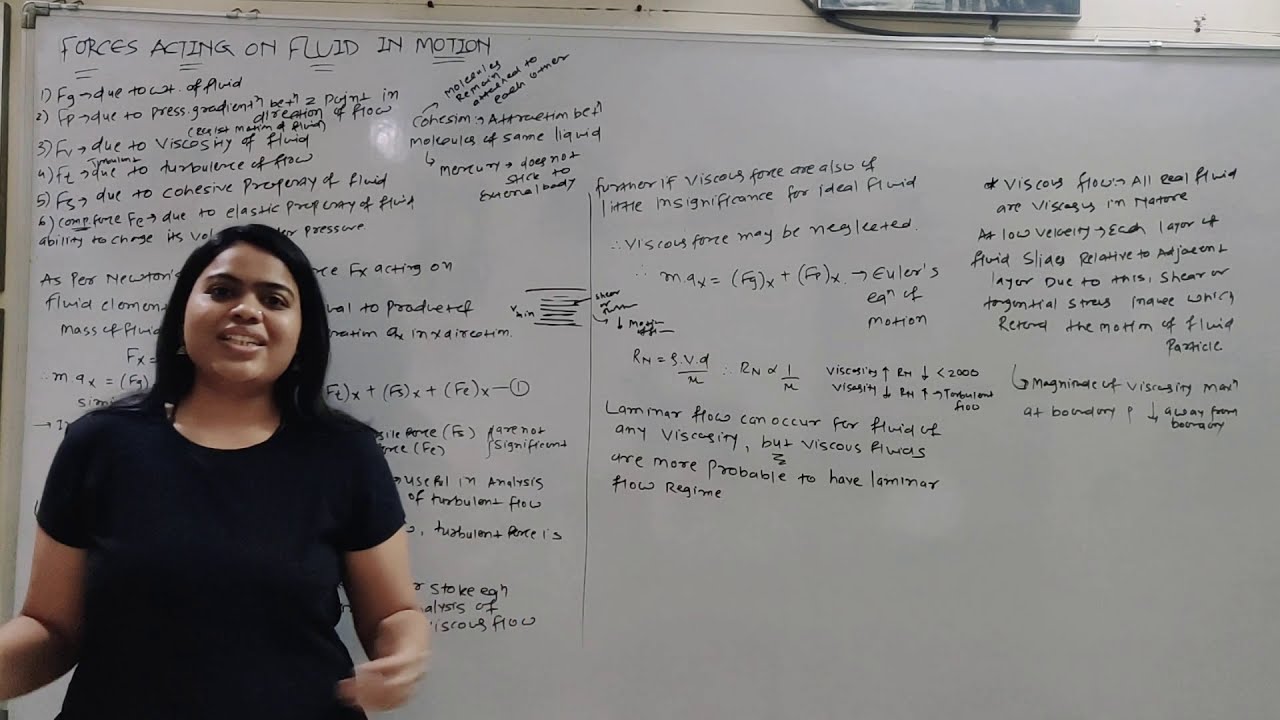 FORCES ACTING ON FLUID IN MOTION
1) Fg → due to wt. of fluid
2) Fp → due to press. gradientⁿ betⁿ 2 Point in
direction of flow
(resist motion of fluid)
3) Fv → due to Viscosity of fluid
Turbulent
4) ft → due to turbulence of flow
5) Fs → due to cohesive Property of fluid
6) comp. force Fe → due to elastic property of fluid
ability to change its Vol Pressure.
molecules
remain
attached to
each other
Cohesion → Attraction betⁿ
molecules of same liquid
mercury → does not
stick to
External body
As Per Newton's Fx acting on
fluid elemen al to Product of
mass of fluid ax in x direction.
Fx =
∴ m.ax = (Fg) Ft)x + (Fs)x + (Fe)x — ①
force (Fs) are not
(Fe) significant
useful in Analysis
of turbulent flow
, turbulent force is
stoke eqⁿ
of
viscous flow
further if Viscous force are also of
little insignificance for ideal fluid
∴ Viscous force may be neglected.
∴ m.ax = (Fg)x + (Fp)x. → Euler's
eqⁿ of
motion
Vmin
shear
RN = ρ.V.d/μ ∴ RN ∝ 1/μ
Viscosity ↑ RN ↓ < 2000
Viscosity ↓ RN ↑ → Turbulent
flow
Laminar flow can occur for fluid of
any Viscosity, but viscous fluids
are more probable to have laminar
flow Regime
* Viscous flow :- All Real fluid
are Viscous in Nature
At low velocity → Each layer of
fluid Slides Relative to Adjacent
layer Due to this, Shear or
tangential stress which
Retend the motion of fluid
Particle
Magnitude of Viscosity maxⁿ
at boundary & ↓ away from
boundary